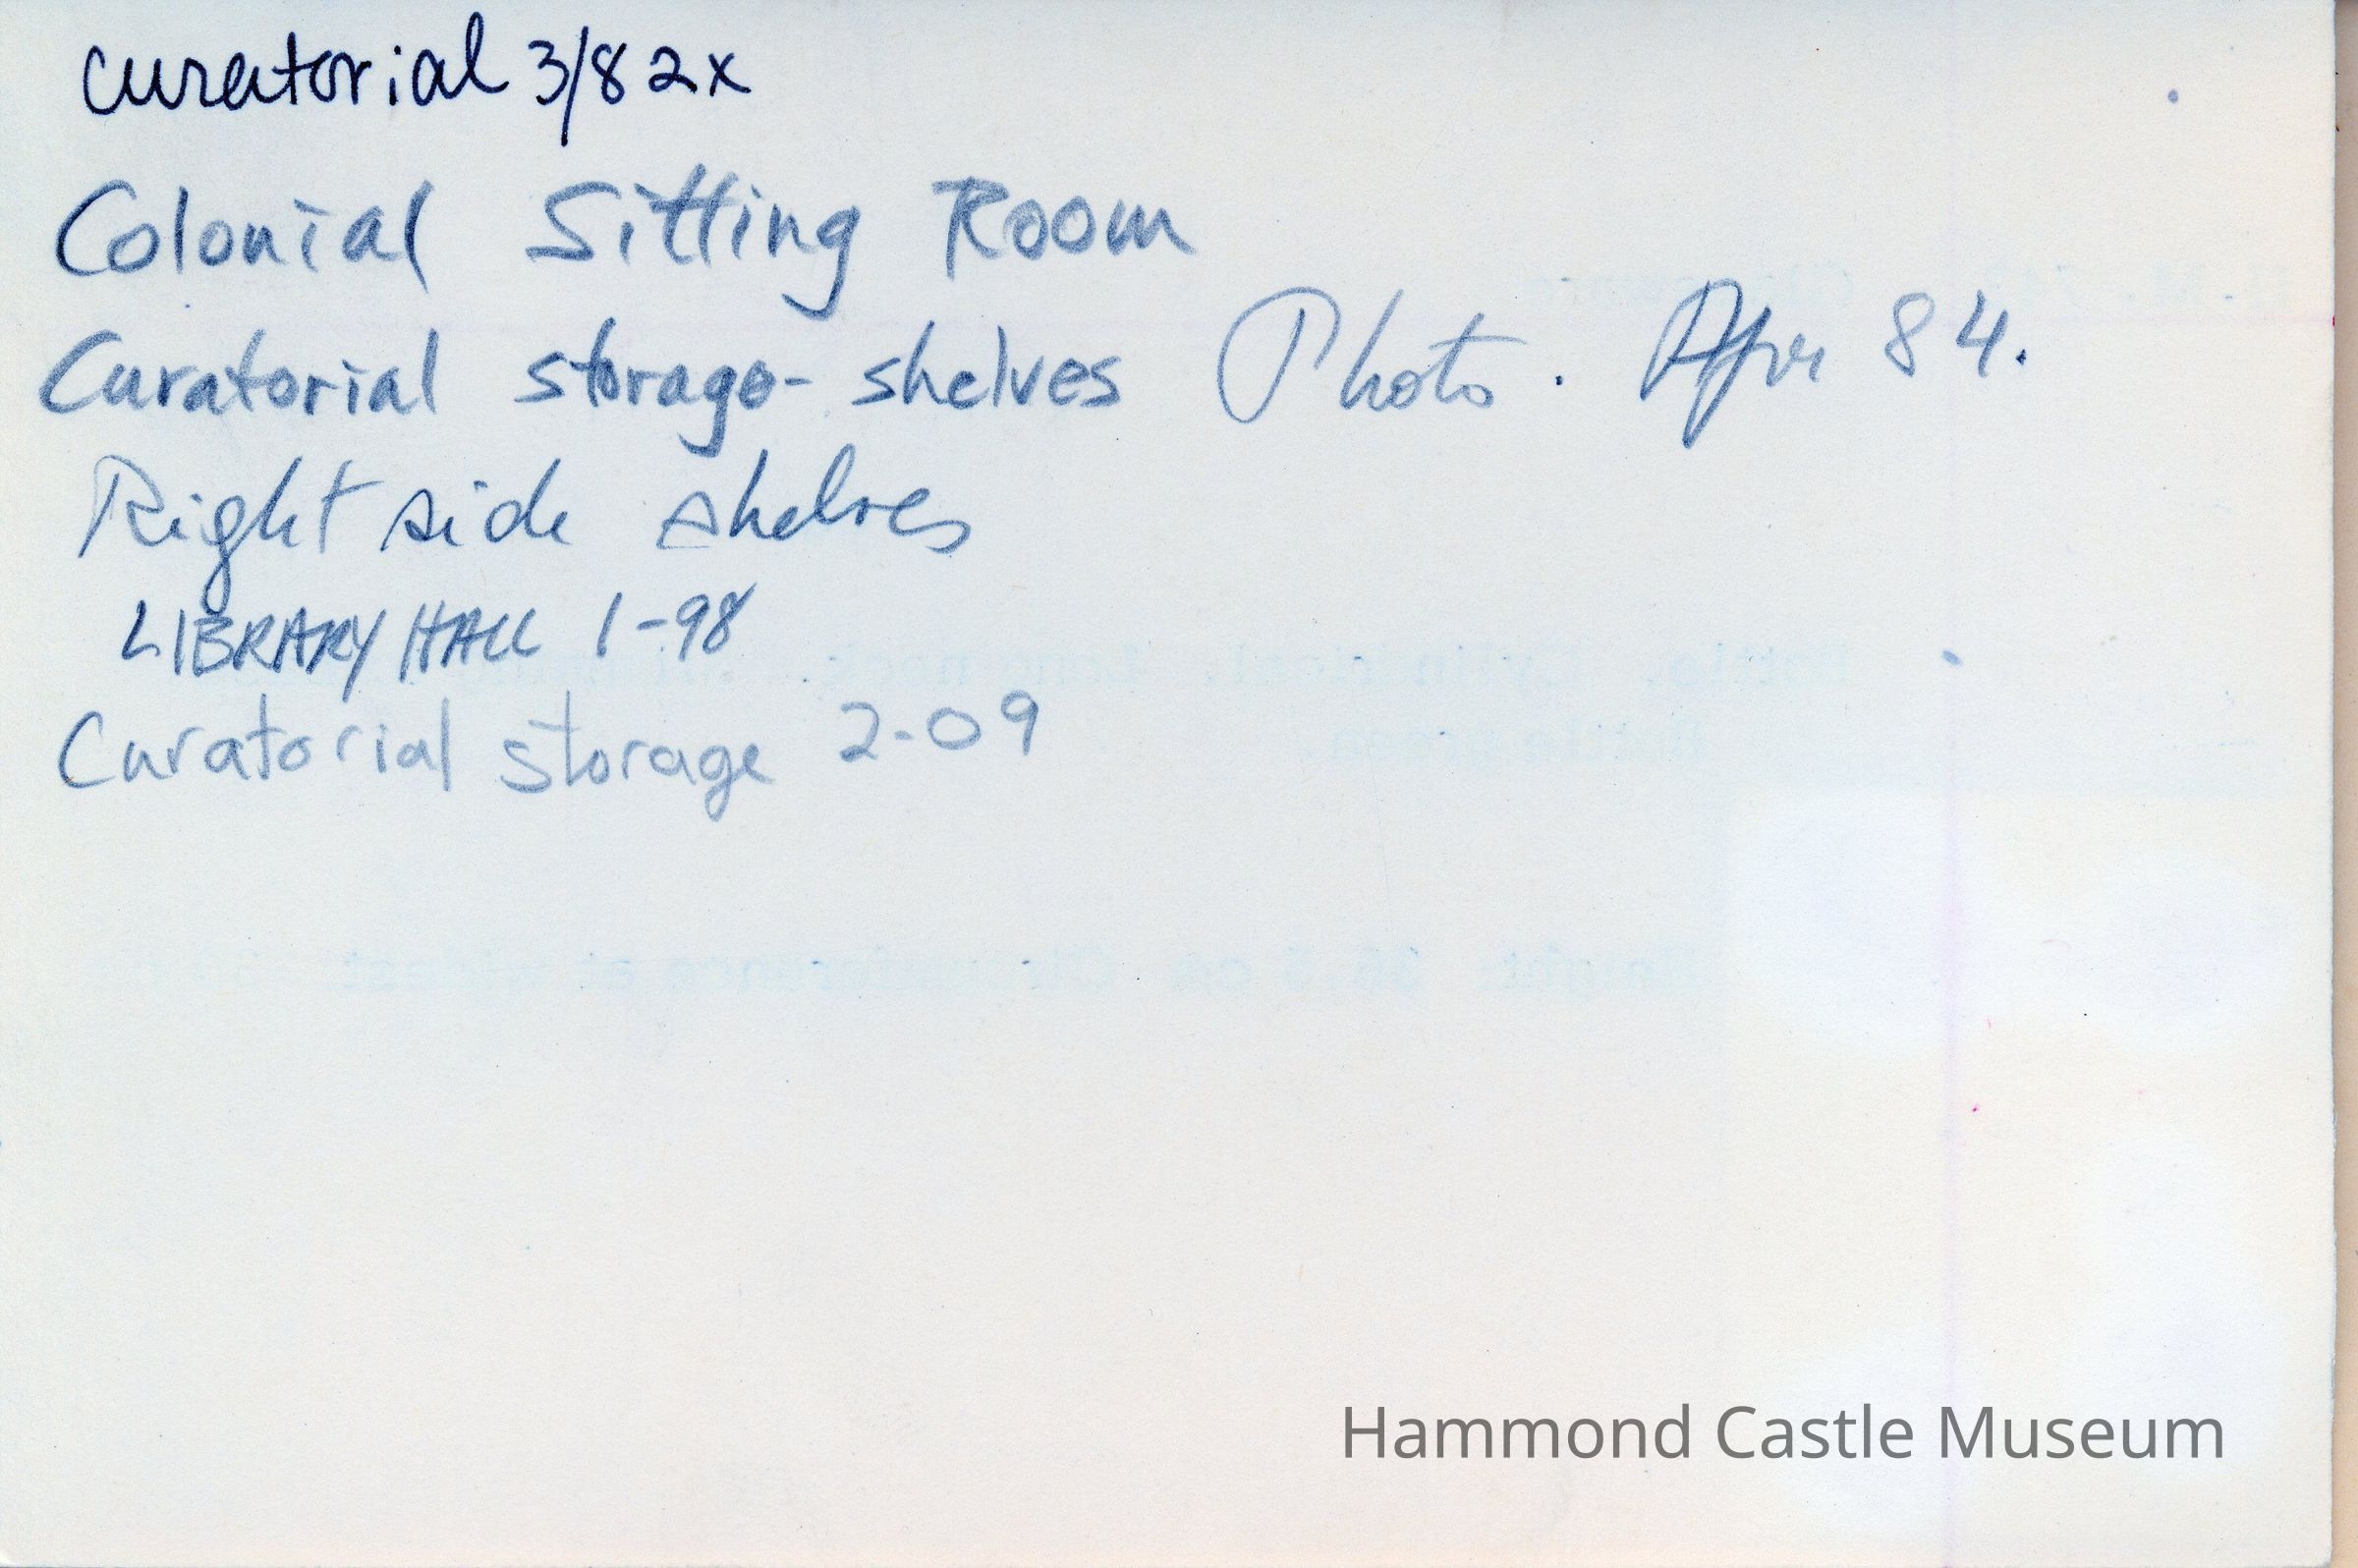 curatorial 3/82x
Colonial Sitting Room
Curatorial storage-shelves Photo. Apr 84.
Right side shelves
LIBRARY HALL 1-98
Curatorial storage 2-09
Hammond Castle Museum